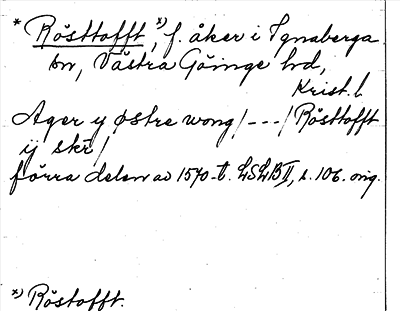 * Rösttofft,*) f. åker i Ignaberga
sn, Västra Göinge hd,
Krist. l
Ager y østre wong/---/Rösttofft
ij skr/
förra delen av 1570-t. LSLB II, s. 106. orig.
*) Röstofft.